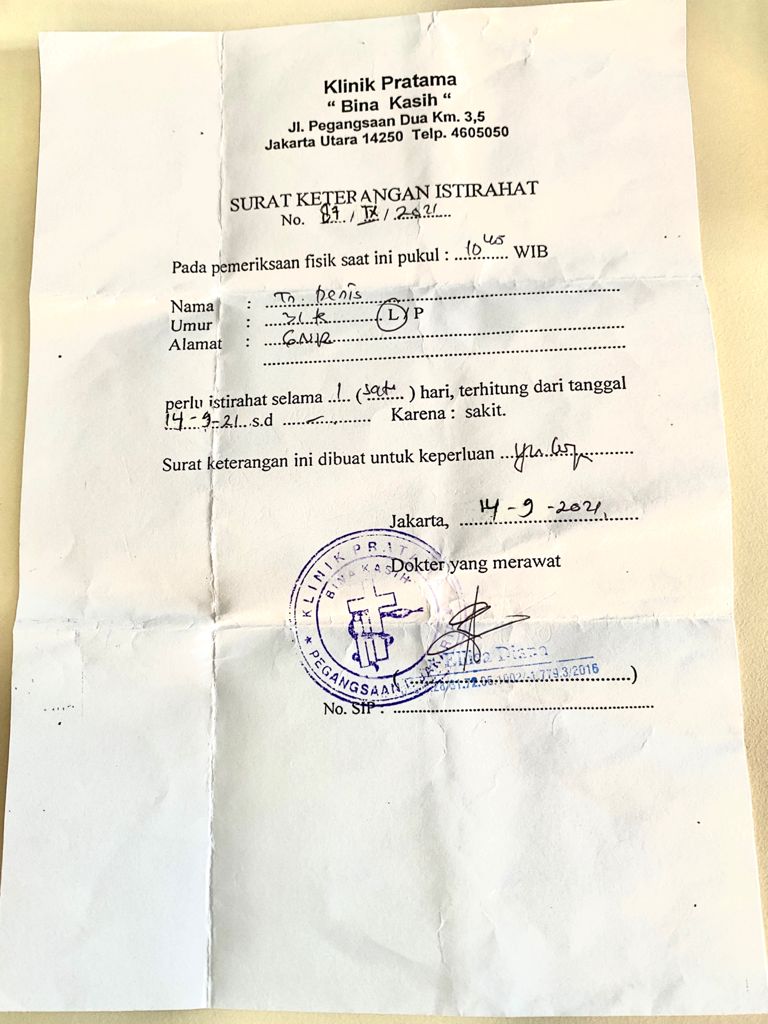 Klinik Pratama
“ Bina Kasih “
Jl. Pegangsaan Dua Km. 3,5
Jakarta Utara 14250 Telp. 4605050
SURAT KETERANGAN ISTIRAHAT
No. 87 / IX / 2021
Pada pemeriksaan fisik saat ini pukul : 10 45 WIB
Nama : Tn. Denis
Umur : L / P
Alamat :
perlu istirahat selama 1 (satu) hari, terhitung dari tanggal
14-9-21 s.d Karena : sakit.
Surat keterangan ini dibuat untuk keperluan
Jakarta, 14-9-2021
Dokter yang merawat
KLINIK PRATAMA
BINA KASIH
PEGANGSAAN
Diana
No. SIP :